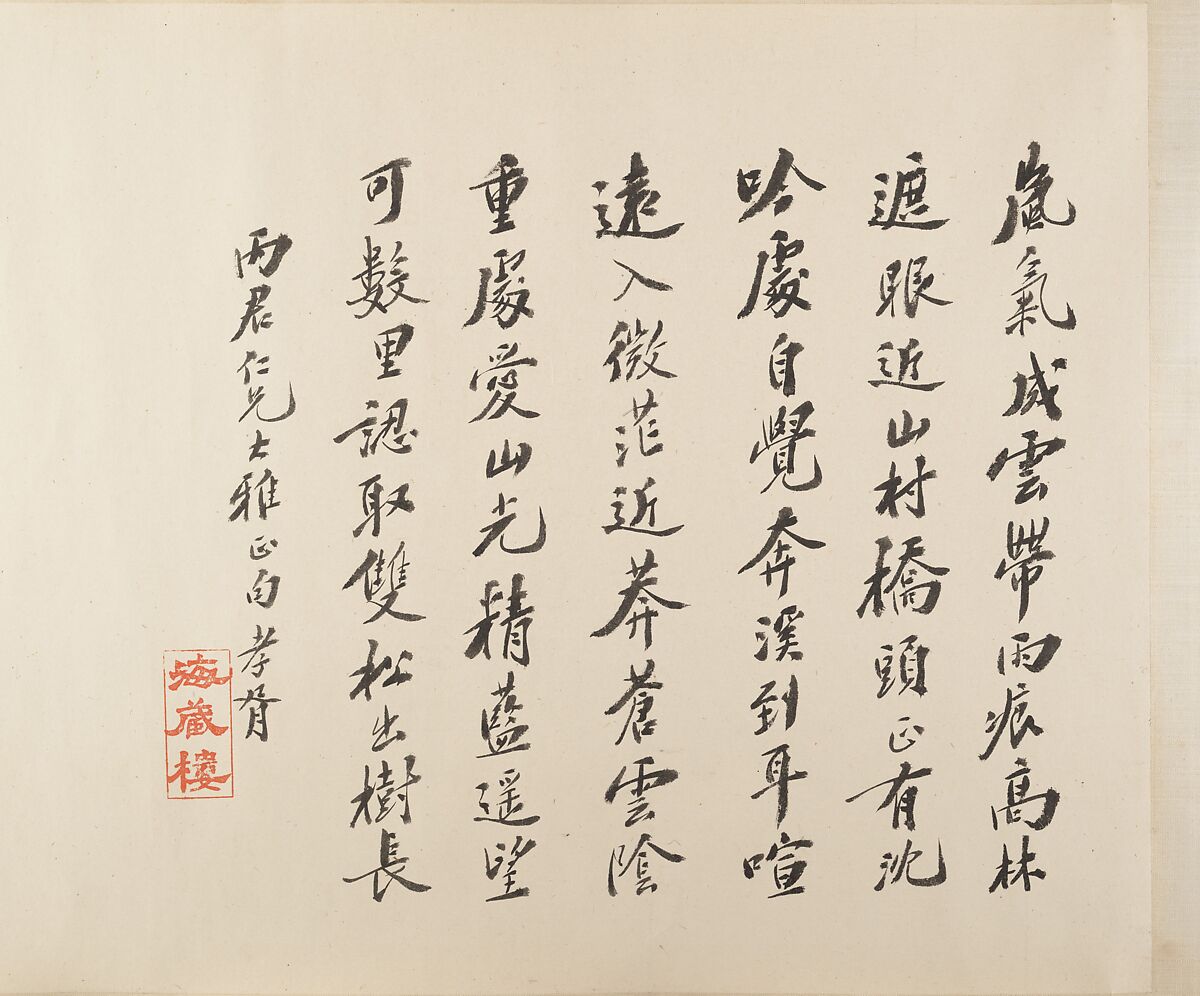 嵐氣成雲帶雨痕高林
遮眼近山村橋頭正有沈
吟處自覺奔溪到耳喧
遠入微茫近莽蒼雲陰
重處愛山光精藍遥望
可數里認取雙松出樹長
丙君仁兄大雅正句 孝胥
海藏樓